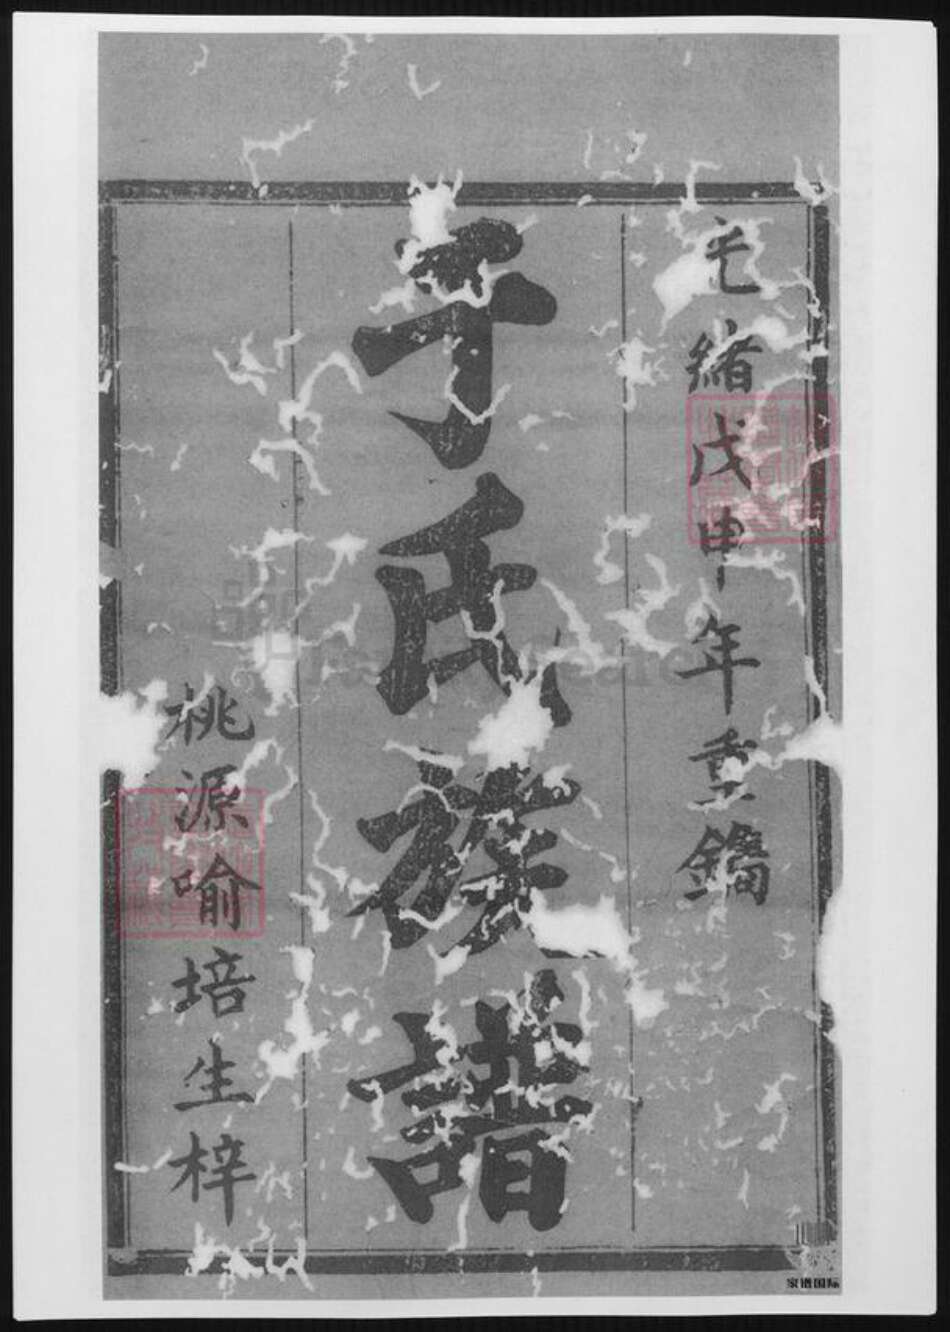 光緒戊申年重鐫
于氏族譜
桃源喻培生梓
家谱国际